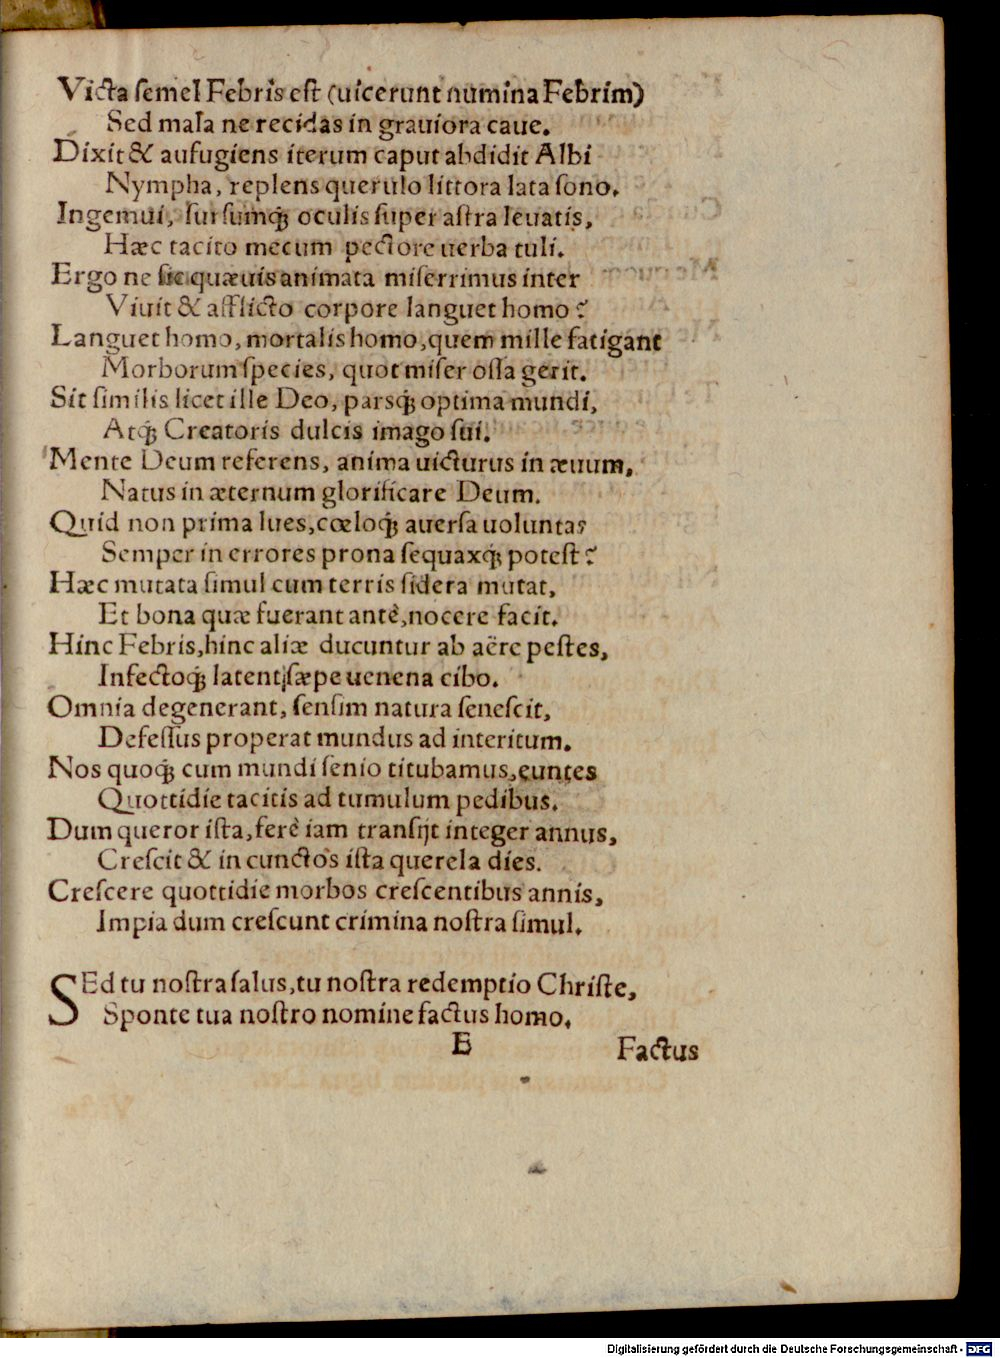 Victa ſemel Febris eſt (uicerunt numina Febrim)
Sed mala ne recidas in grauiora caue.
Dixit & aufugiens iterum caput abdidit Albi
Nympha, replens querulo littora lata ſono.
Ingemui, ſurſumq́ꝫ oculis ſuper aſtra leuatis,
Hæc tacito mecum pectore uerba tuli.
Ergo ne ſic quæuis animata miſerrimus inter
Viuit & afflicto corpore languet homo?
Languet homo, mortalis homo, quem mille fatigant
Morborum ſpecies, quot miſer oſſa gerit.
Sit ſimilis licet ille Deo, parsq́ꝫ optima mundi,
Atq́ꝫ Creatoris dulcis imago ſui.
Mente Deum referens, anima uicturus in æuum,
Natus in æternum glorificare Deum.
Quid non prima lues, cœloq́ꝫ auerſa uoluntas
Semper in errores prona ſequaxq́ꝫ poteſt?
Hæc mutata ſimul cum terris ſidera mutat,
Et bona quæ fuerant antè, nocere facit.
Hinc Febris, hinc aliæ ducuntur ab aëre peſtes,
Infectoq́ꝫ latent ſæpe uenena cibo.
Omnia degenerant, ſenſim natura ſeneſcit,
Defeſſus properat mundus ad interitum.
Nos quoq́ꝫ cum mundi ſenio titubamus, euntes
Quottidie tacitis ad tumulum pedibus.
Dum queror iſta, ferè iam tranſijt integer annus,
Creſcit & in cunctos iſta querela dies.
Creſcere quottidie morbos creſcentibus annis,
Impia dum creſcunt crimina noſtra ſimul.
SEd tu noſtra ſalus, tu noſtra redemptio Chriſte,
Sponte tua noſtro nomine factus homo.
B Factus
Digitalisierung gefördert durch die Deutsche Forschungsgemeinschaft - DFG